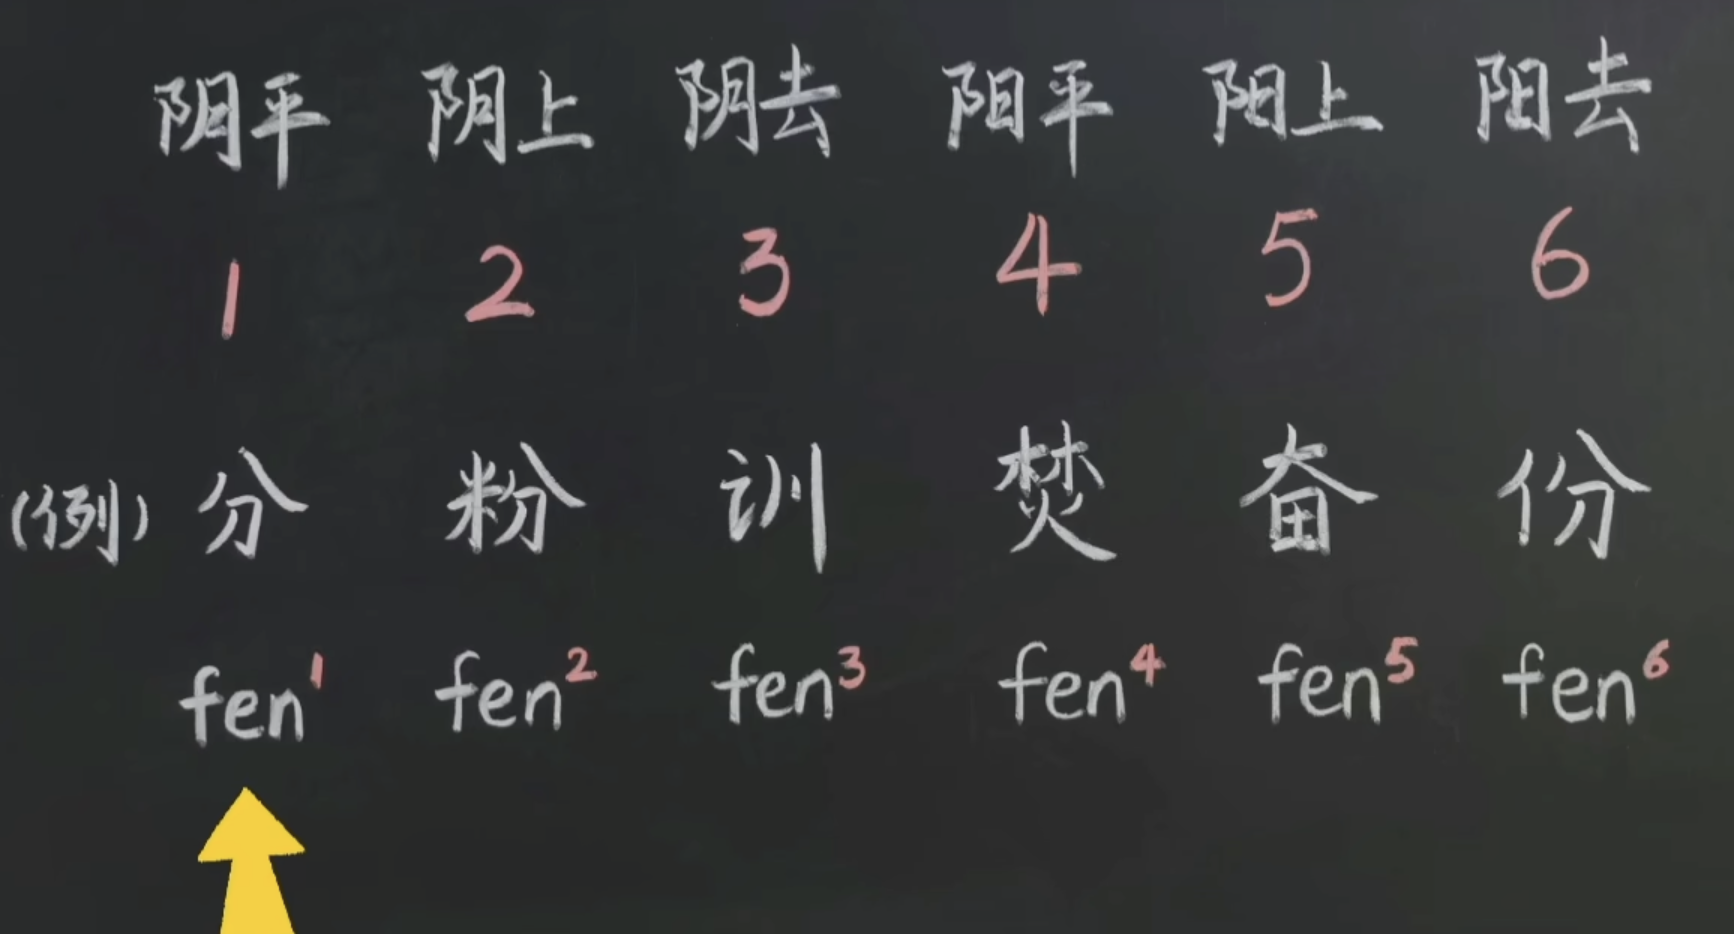 阴平 阴上 阴去 阳平 阳上 阳去
1 2 3 4 5 6
(例) 分 粉 训 焚 奋 份
fen¹ fen² fen³ fen⁴ fen⁵ fen⁶